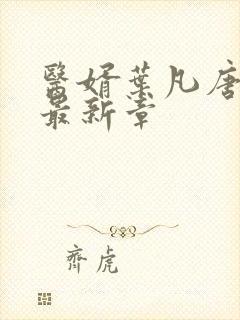 醫婿葉凡唐
最新章
齊虎